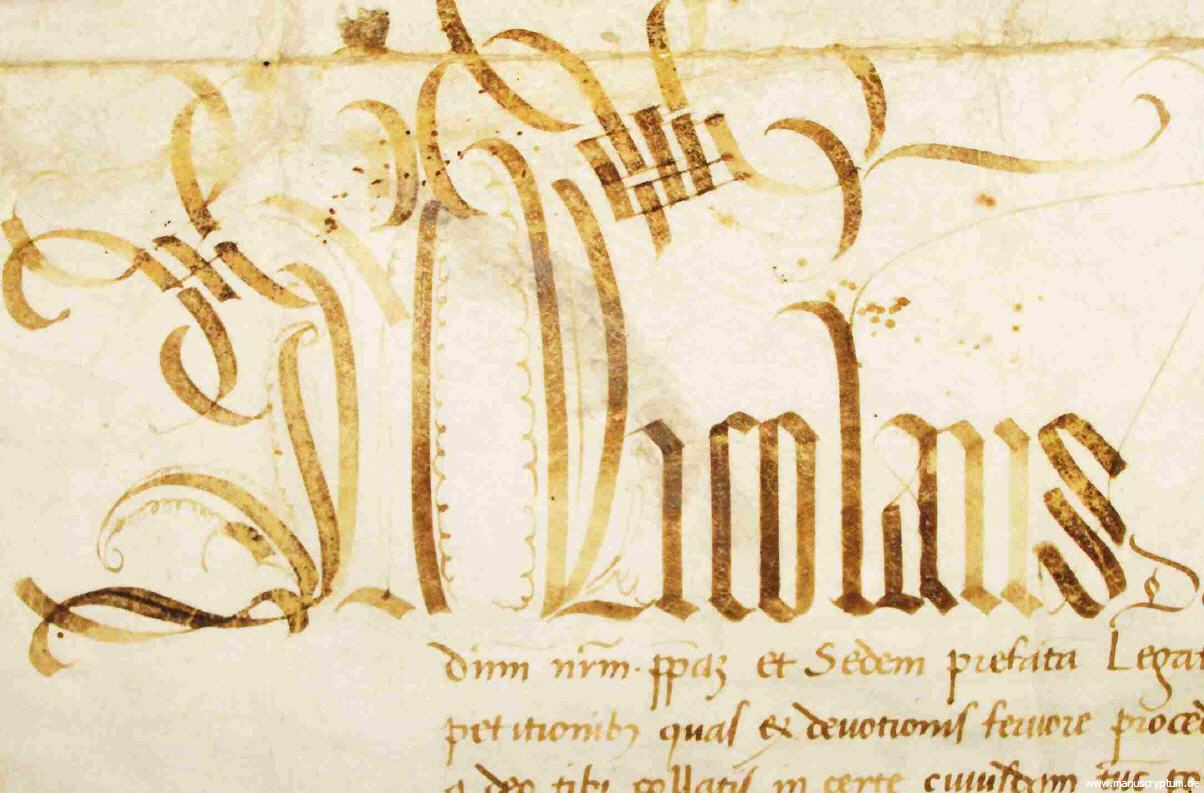 Nicolaus
dn̄m nr̄m. pp̄aȝ et Sedem prefatā Legat
petitionibȝ quas ex devotionis fervore proced
a deo tibi collatis in certe cuiusdam
www.manuscryptum.de